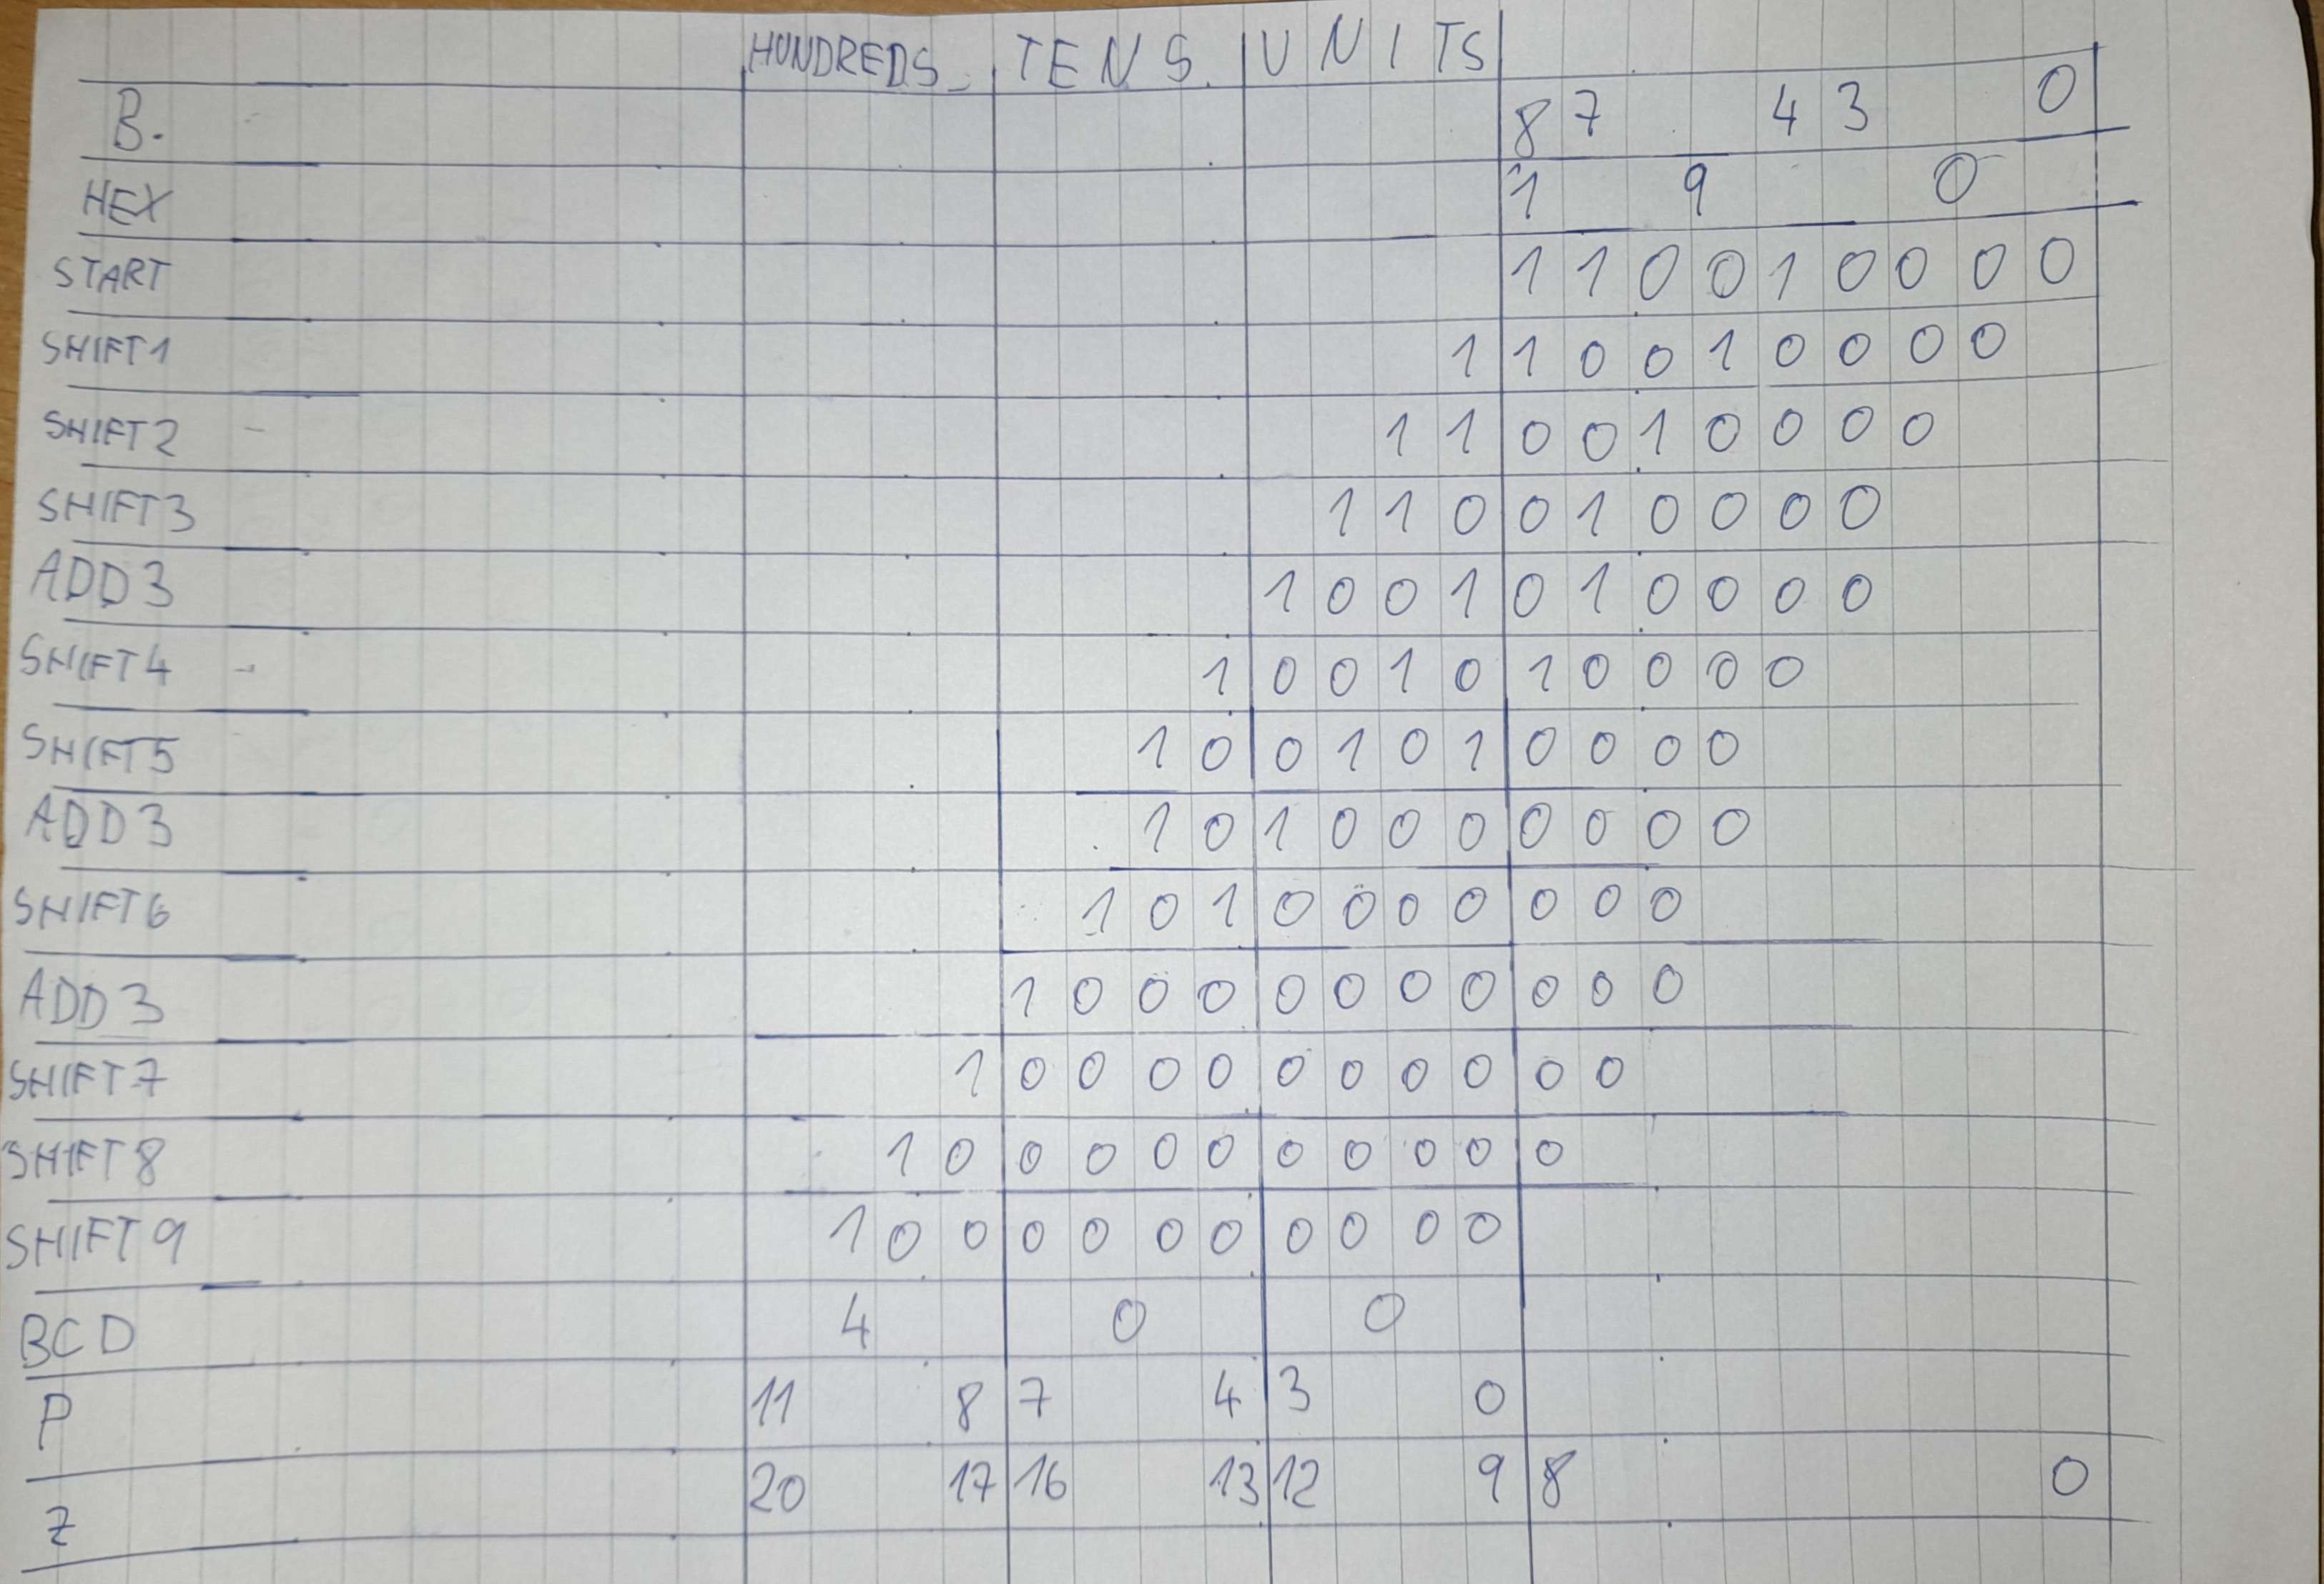 HUNDREDS TENS UNITS
B. 8 7 4 3 0
HEX 1 9 0
START 1 1 0 0 1 0 0 0 0
SHIFT1 1 1 0 0 1 0 0 0 0
SHIFT2 1 1 0 0 1 0 0 0 0
SHIFT3 1 1 0 0 1 0 0 0 0
ADD3 1 0 0 1 0 1 0 0 0 0
SHIFT4 1 0 0 1 0 1 0 0 0 0
SHIFT5 1 0 0 1 0 1 0 0 0 0
ADD3 1 0 1 0 0 0 0 0 0 0
SHIFT6 1 0 1 0 0 0 0 0 0 0
ADD3 1 0 0 0 0 0 0 0 0 0 0
SHIFT7 1 0 0 0 0 0 0 0 0 0 0
SHIFT8 1 0 0 0 0 0 0 0 0 0 0
SHIFT9 1 0 0 0 0 0 0 0 0 0 0
BCD 4 0 0
P 11 8 7 4 3 0
Z 20 17 16 13 12 9 8 0